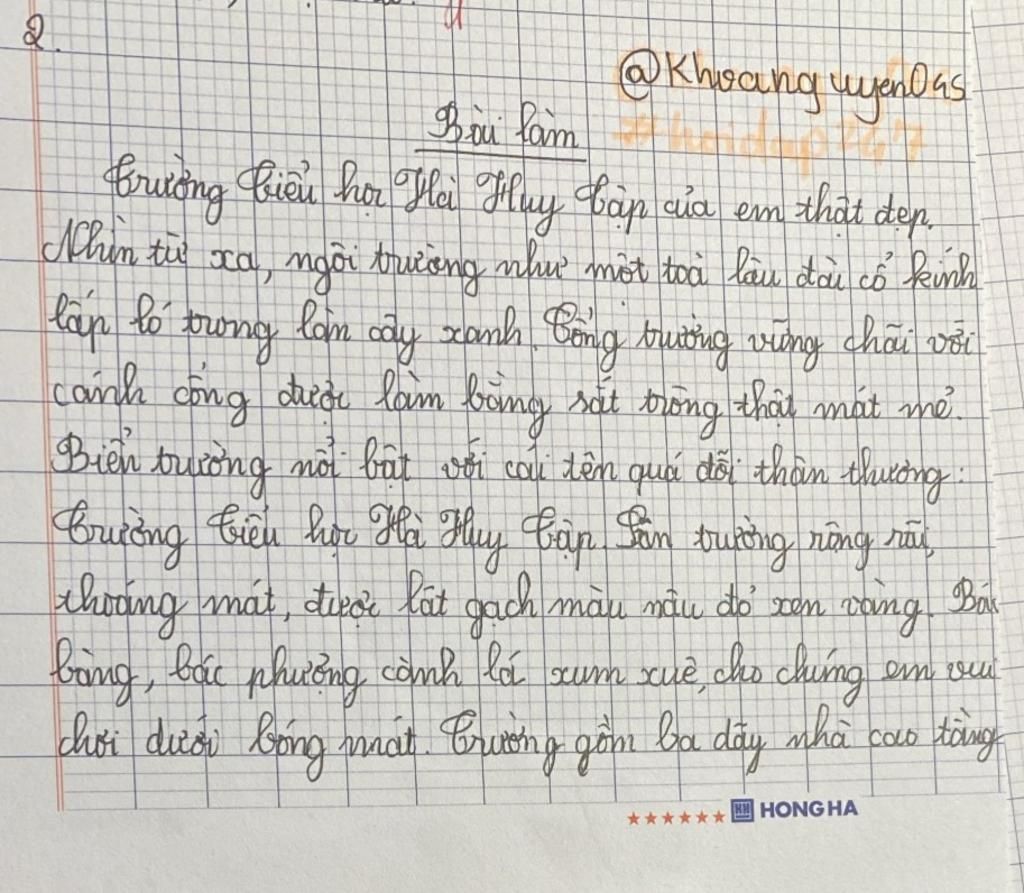 2.
@Khoanguyen045
Bài làm
Trường Tiểu học Hà Huy Tập của em thật đẹp.
Nhìn từ xa, ngôi trường như một toà lâu đài cổ kính
lấp ló trong lòm cây xanh. Cổng trường vững chãi với
cánh cổng được làm bằng sắt trông thật mát mẻ.
Biển trường nổi bật với cái tên quá đỗi thân thương:
Trường Tiểu học Hà Huy Tập. Sân trường rộng rãi,
thoáng mát, được lát gạch màu nâu đỏ xen vàng. Bác
bàng, bác phượng cành lá xum xuê, cho chúng em vui
chơi dưới bóng mát. Trường gồm ba dãy nhà cao tầng
HONG HA